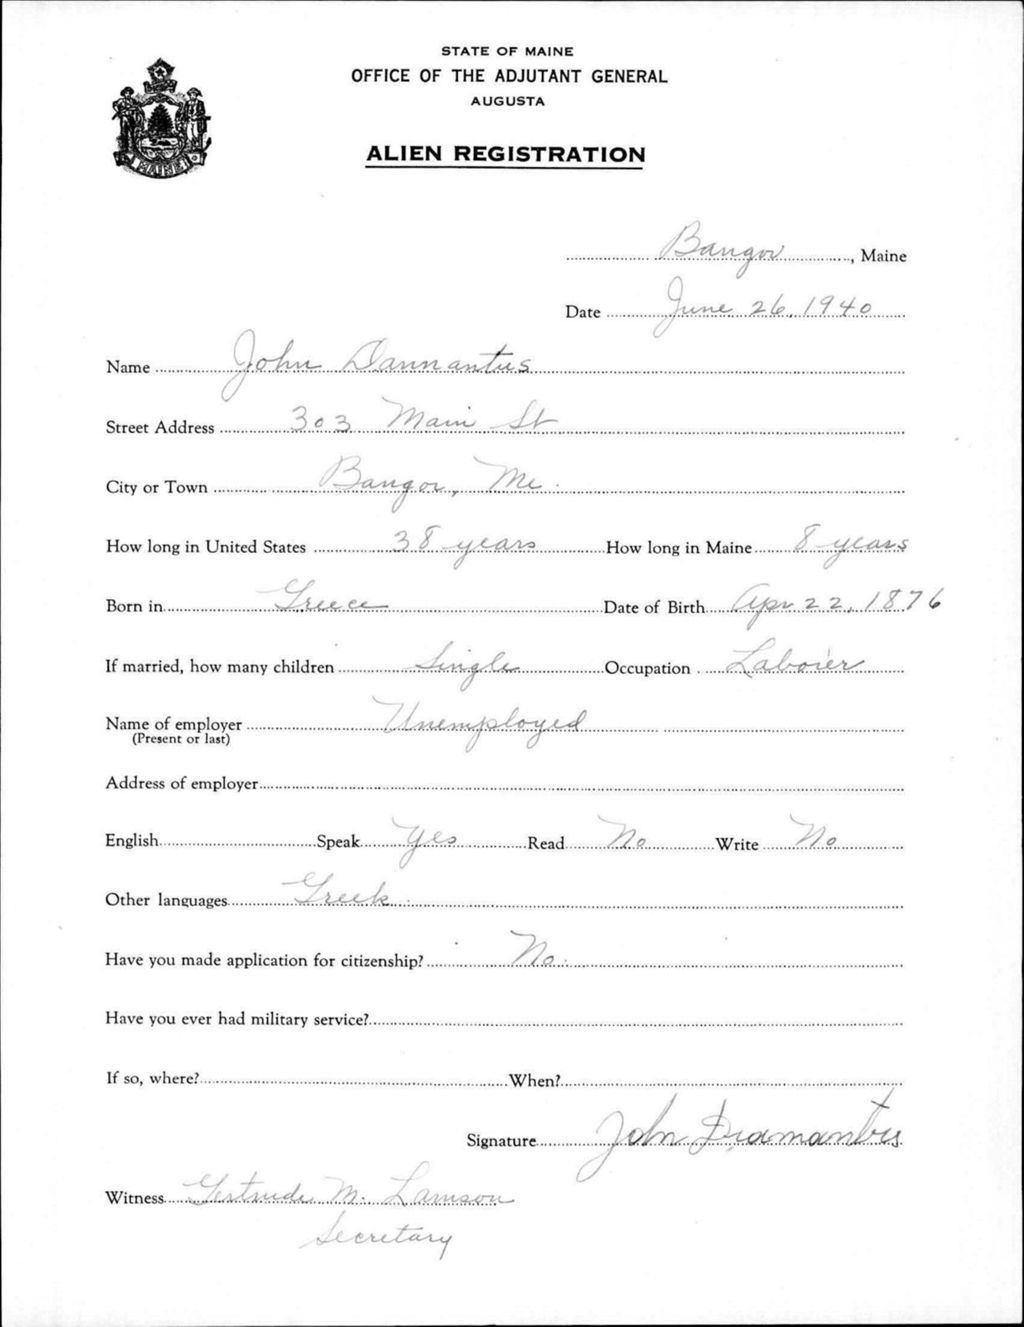 STATE OF MAINE
OFFICE OF THE ADJUTANT GENERAL
AUGUSTA
ALIEN REGISTRATION
MAINE
Bangor, Maine
Date June 26, 1940
Name John Dammantus
Street Address 303 Main St
City or Town Bangor, Me.
How long in United States 38 years How long in Maine 8 years
Born in Greece Date of Birth Apr 22, 1876
If married, how many children Single Occupation Laborer
Name of employer Unemployed
(Present or last)
Address of employer
English Speak Yes Read No Write No
Other languages Greek
Have you made application for citizenship? No.
Have you ever had military service?
If so, where? When?
Signature John Diamantus
Witness Gertrude M. Lamson
Secretary